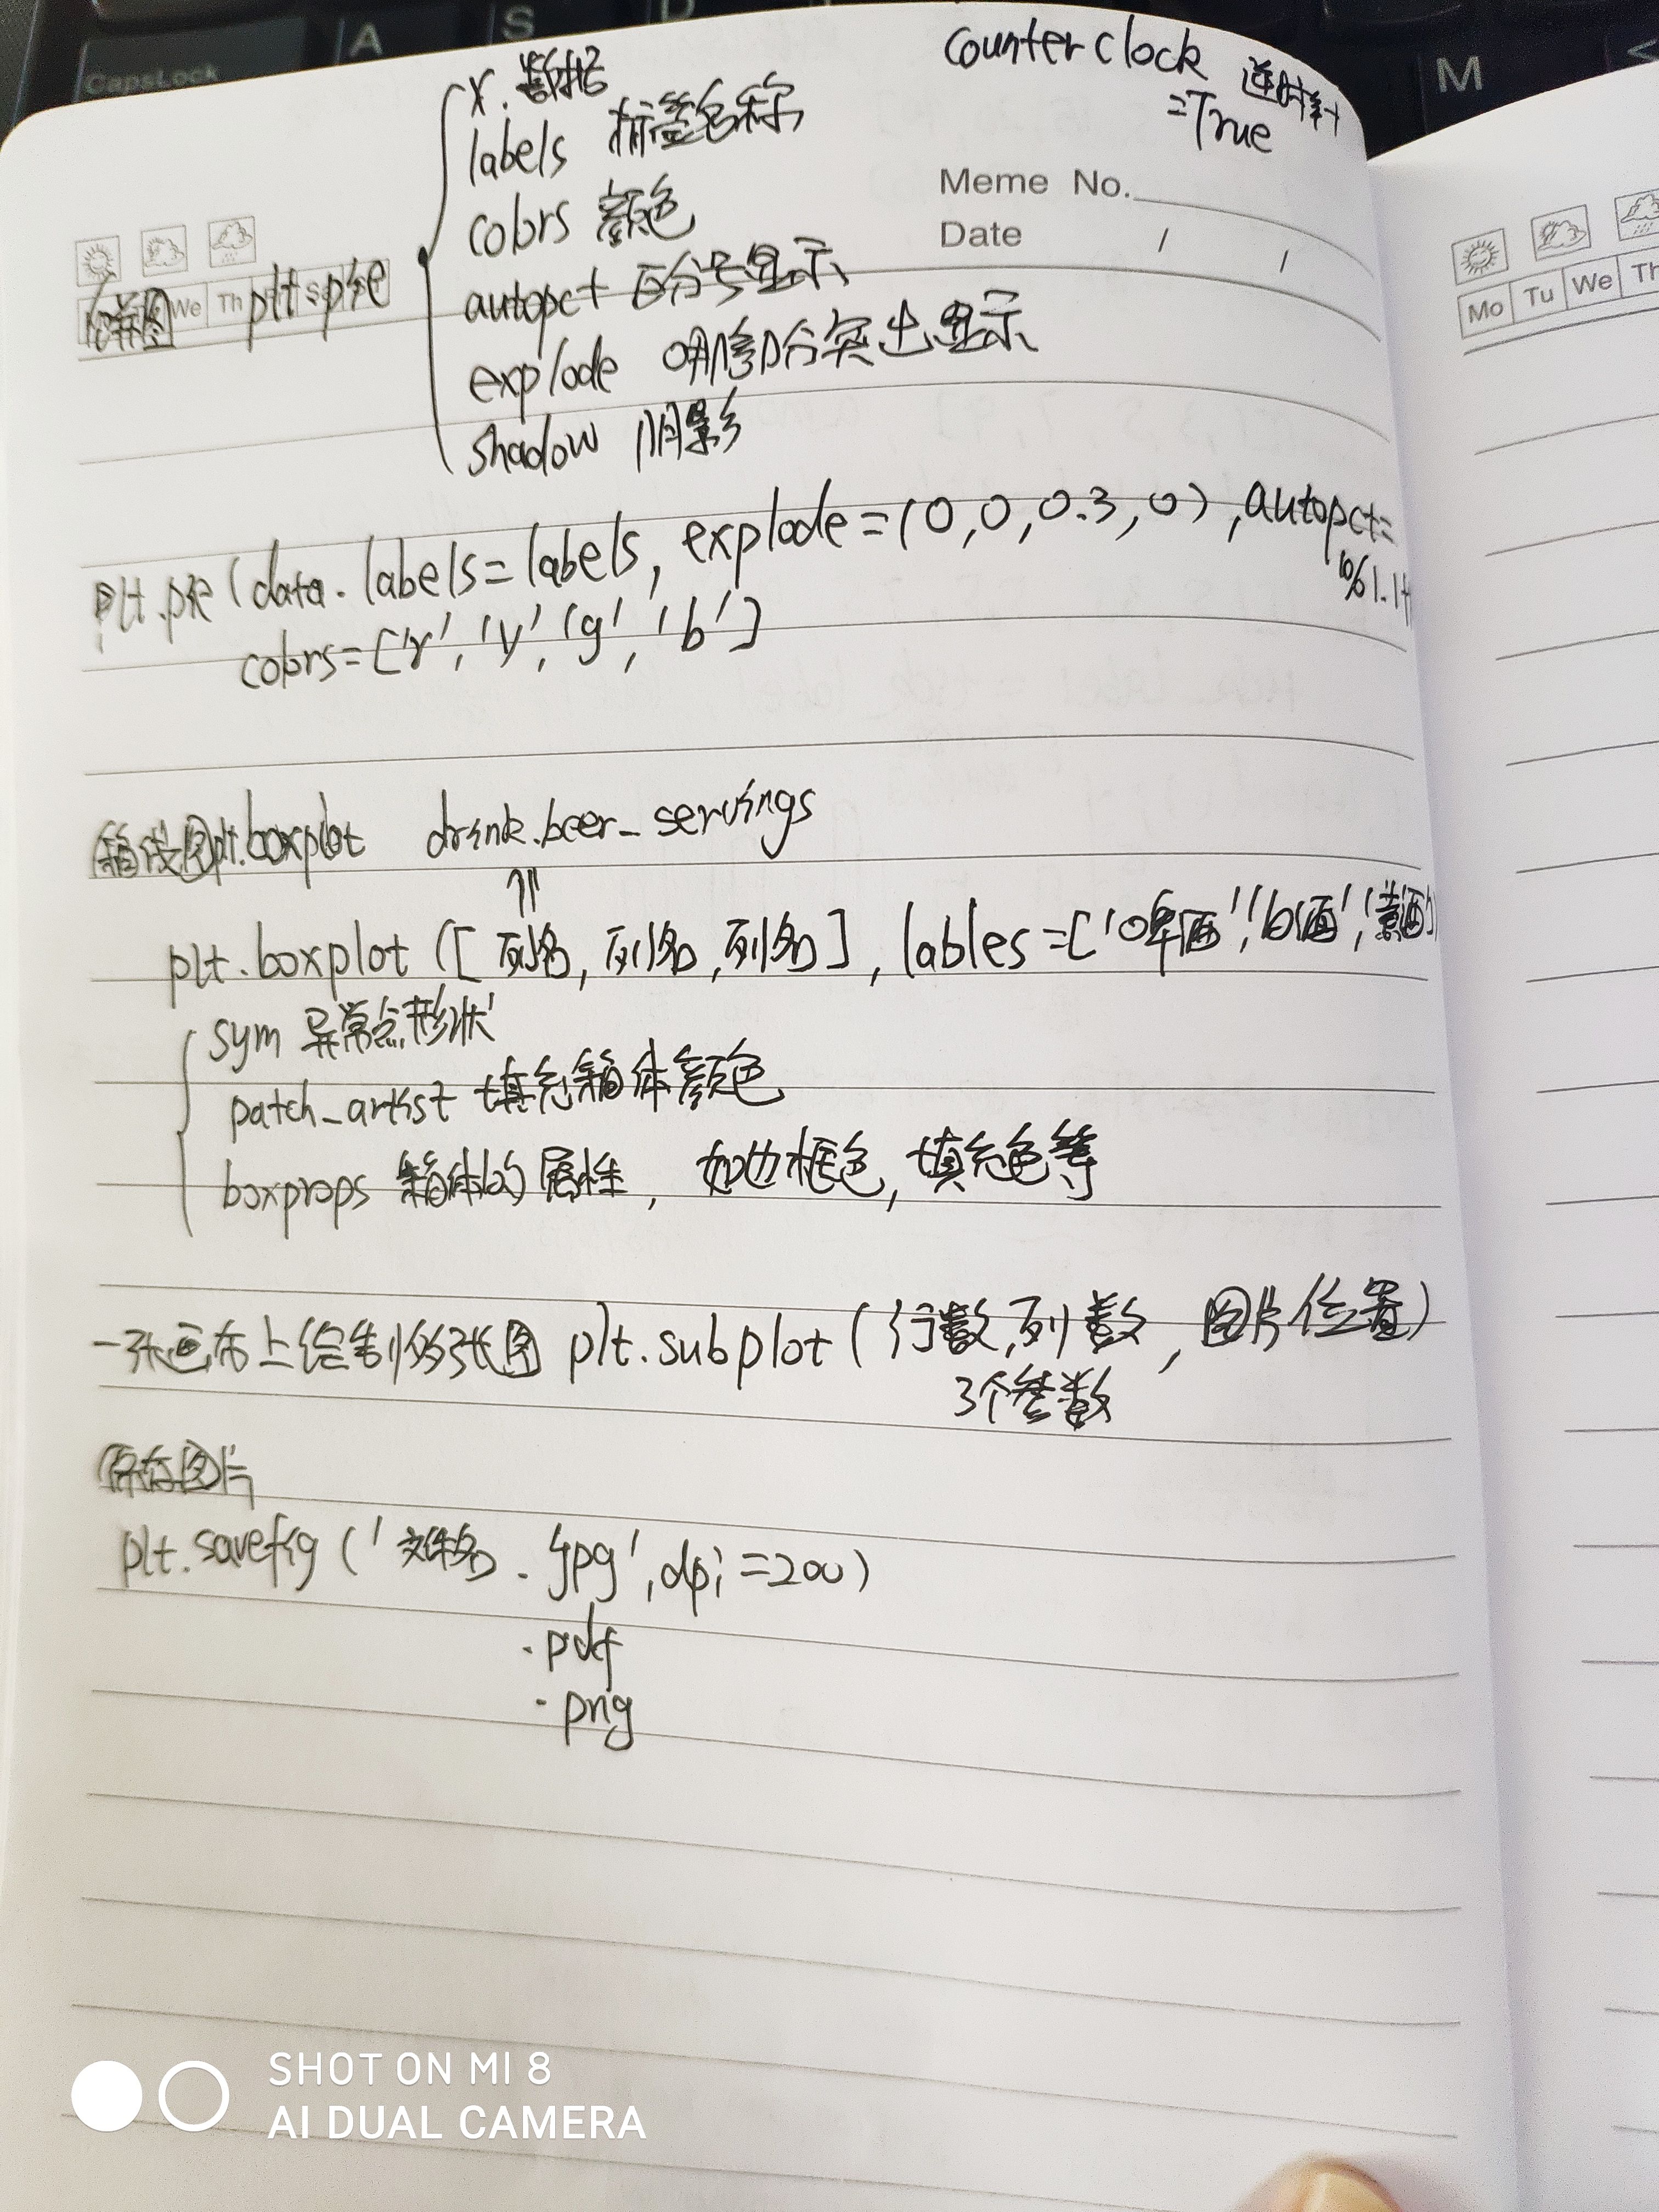 CapsLock A S D M <
counterclock 逆时针
=True
x.数据
labels 标签名称
colors 颜色
Meme No.
Date / /
autopct 百分号显示
饼图 We Th plt.pie
explode 哪部分突出显示
shadow 阴影
Mo Tu We Th
plt.pie(data.labels=labels, explode=(0,0,0.3,0),autopct=
%1.1f
colors=['r','y','g','b']
箱线图plt.boxplot drink.beer_servings
⇑
plt.boxplot([列名,列名,列名],lables=['啤酒','白酒',
sym 异常点形状
patch_artist 填充箱体颜色
boxprops 箱体的属性, 如边框色,填充色等
一张画布上绘制多张图 plt.subplot(行数,列数,图片位置)
3个参数
保存图片
plt.savefig('文件名.jpg',dpi=200)
.pdf
.png
SHOT ON MI 8
AI DUAL CAMERA